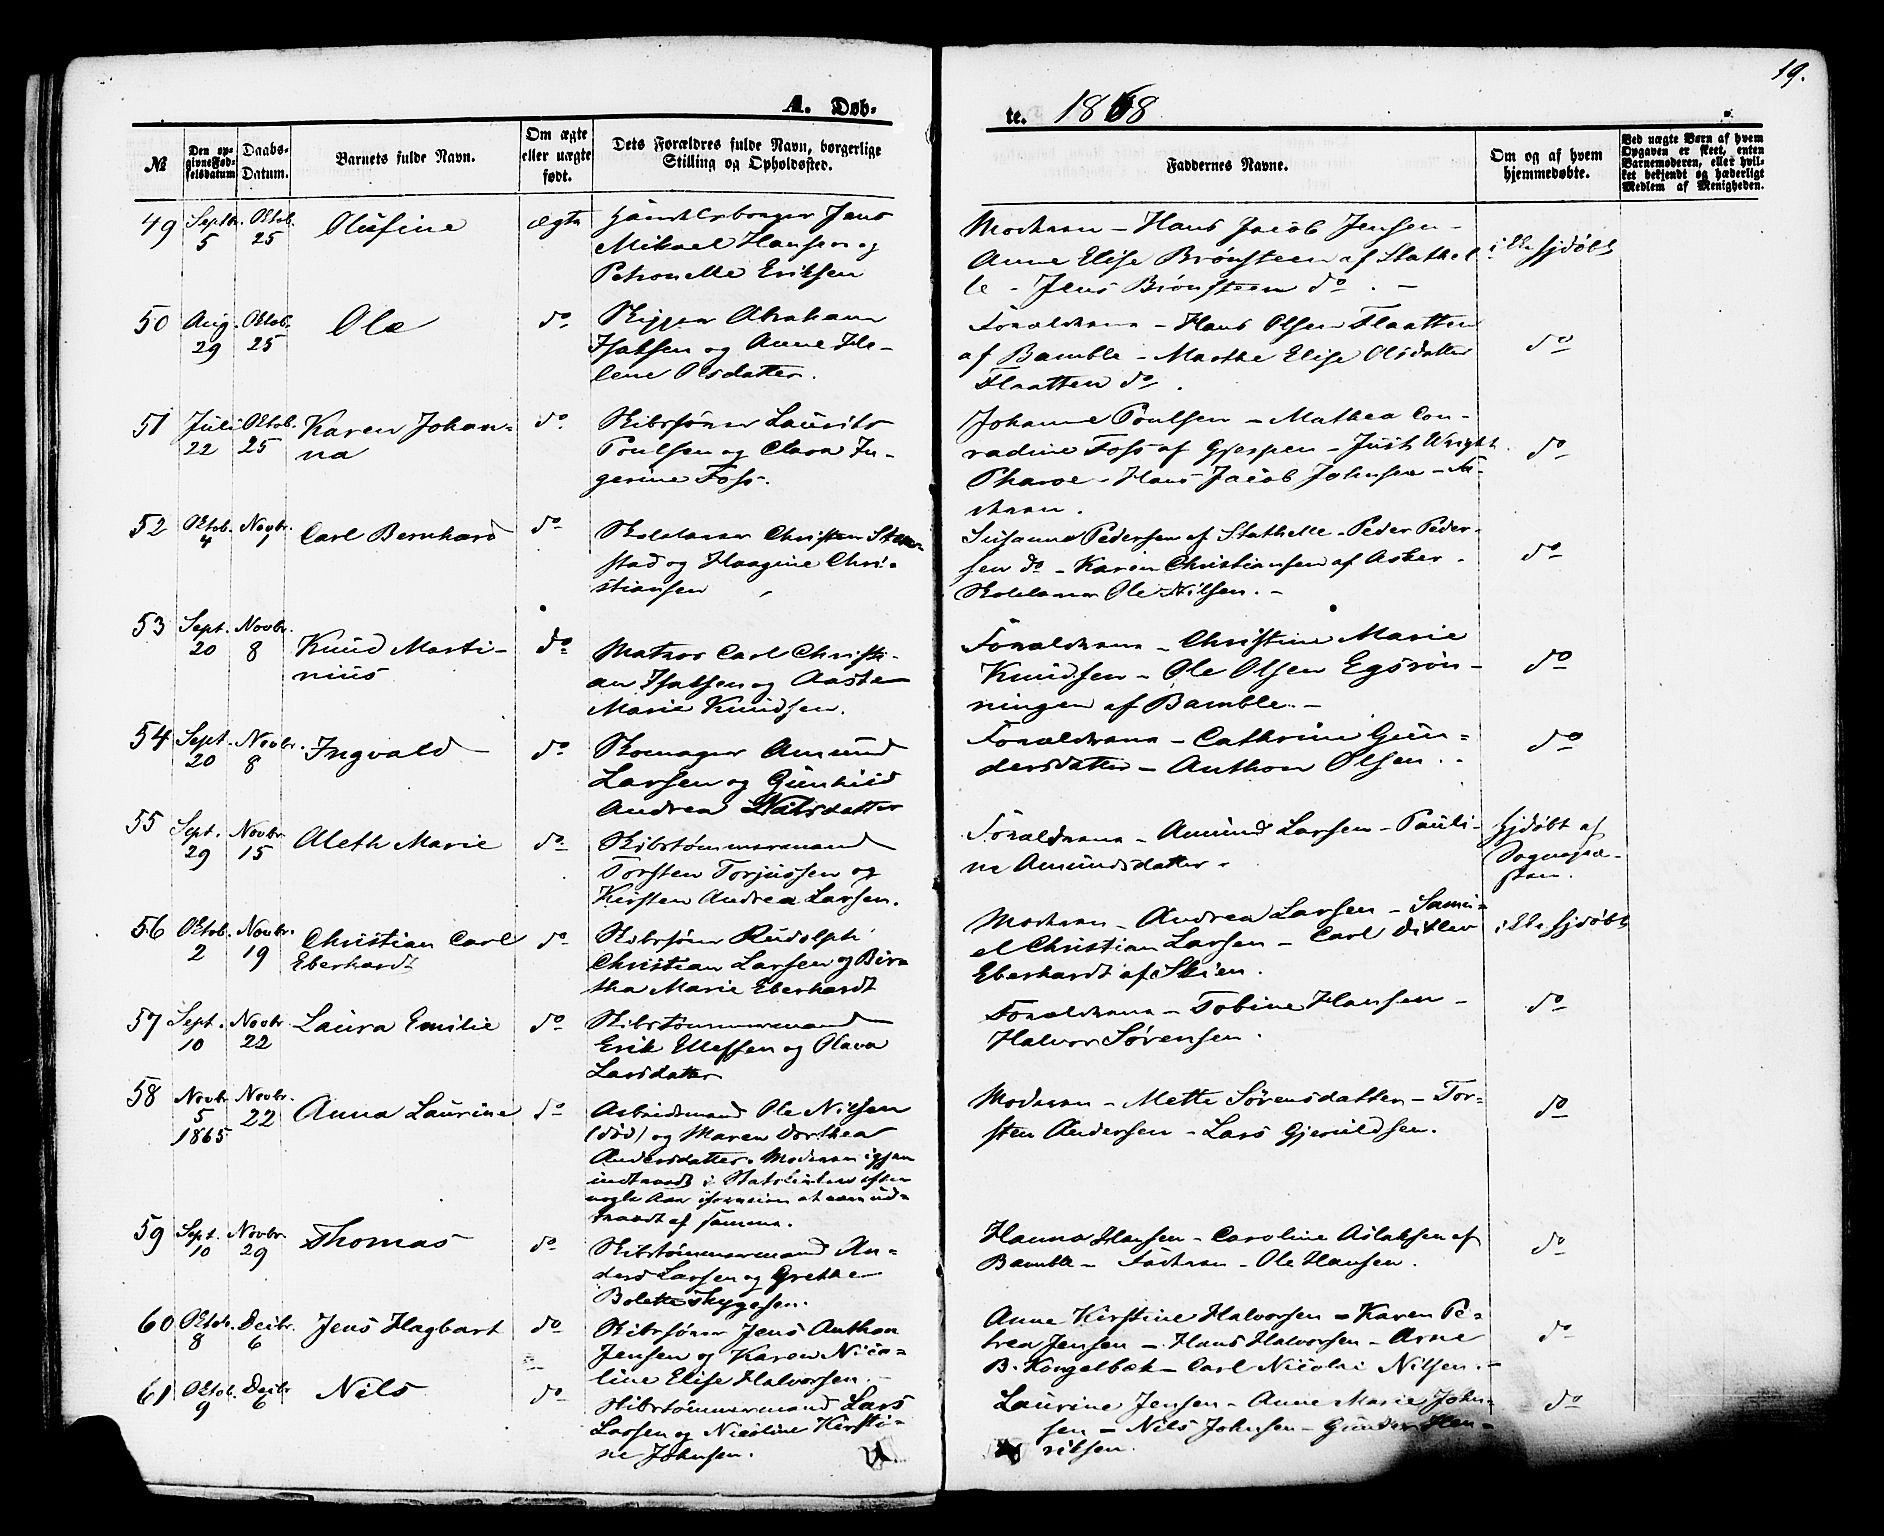 19.
A. Døb-
te. 1868
№
Den op-
givne Fød-
selsdatum
Daabs-
Datum.
Barnets fulde Navn.
Om ægte
eller uægte
født.
Dets Forældres fulde Navn, borgerlige
Stilling og Opholdssted.
Faddernes Navne.
Om og af hvem
hjemmedøbte.
Ved uægte Børn af hvem
Opgaven er skeet, enten
Barnemoderen, eller hvil-
ket bekjendt og hæderligt
Medlem af Menigheden.
49 Septbr. 5 Oktob. 25 Olufine ægte
Jens
Mikael Hansen og
Petronelle Eriksen
Moderen - Hans Jacob Jensen -
Anne Elise Brønsteen af Stathel
le - Jens Brønsteen do. -
ikke hjdøbt
50 Aug. 29 Oktob. 25 Ole do
Skipper Abraham
Isaksen og Anne He-
lene Olsdatter.
Forældrene - Hans Olsen Flaatten
af Bamble - Marthe Elise Olsdatter
Flaatten do.
do
51 Juli 22 Oktob. 25 Karen Johan-
na
do
Skibsfører Laurits
Poulsen og Clara In-
gerine Foss.
Johanne Poulsen - Mathea Con-
radine Foss af Gjerpen - Just Wright
Pharoe - Hans Jacob Johnsen - Fa-
deren.
do
52 Oktob. 4 Novbr. 1 Carl Bernhard do
Skolelærer Christen
stad og Haagine Chri-
stiansen
Susanne Pedersen af Stathelle - Peder Peder-
sen do - Karen Christiansen af Asker -
Skolelærer Ole Nilsen. -
do
53 Sept. 20 Novbr. 8 Knud Marti-
nius
do
Matros Carl Christi-
an Isaksen og Aaste
Marie Knudsen.
Forældrene - Christine Marie
Knudsen - Ole Olsen Egsrøn-
ningen af Bamble. -
do
54 Sept. 20 Novbr. 8 Ingvald do
Skomager Amund
Larsen og Gunhild
Andrea
Forældrene - Cathrine Gun-
dersdatter - Anthon Olsen.
do
55 Sept. 29 Novbr. 15 Aleth Marie do
Skibstømmermand
Torsten Torjussen og
Kirsten Andrea Larsen.
Forældrene - Amund Larsen - Pauli-
ne Amundsdatter.
hjdøbt af
Sognepræ-
sten.
56 Oktob. 2 Novbr. 19 Christian Carl
Eberhardt
do
Skibsfører Rudolph
Christian Larsen og Bir-
tha Marie Eberhardt
Moderen - Andrea Larsen - Samu-
el Christian Larsen - Carl Ditlev
Eberhardt af Skien.
ikke hjdøbt
57 Sept. 10 Novbr 22 Laura Emilie do
Skibstømmermand
Erik Ellefsen og Olava
Larsdatter
Forældrene - Tobine Hansen -
Halvor Sørensen.
do
58 Novbr 5 1865 Novbr. 22 Anna Laurine do
Arbeidsmand Ole Nilsen
(død) og Maren Dorthea
Andersdatter. Moderen igjen
indtraadt i Statskirken efter
nogle Aar iforveien at være ud-
traadt af samme.
Moderen - Mette Sørensdatter - Tor-
sten Andersen - Lars Gjeruldsen.
do
59 Sept. 10 Novbr. 29 Thomas do
Skibstømmermand An-
ders Larsen og Grethe
Bolette Thygesen.
Hanna Hansen - Caroline Aslaksen af
Bamble - Faderen - Ole Hansen.
do
60 Oktob. 8 Decbr. 6 Jens Hagbart do
Skibsfører Jens Anthon
Jensen og Karen Nico-
line Elise Halvorsen. -
Anne Kirstine Halvorsen - Karen Pe-
trea Jensen - Hans Halvorsen - Arne
B. Kongelbæk - Carl Nicolai Nilsen. -
do
61 Oktob. 9 Decbr 6 Nils do
Skibstømmermand Lars
Larsen og Nicoline Kirsti-
ne Johnsen.
Laurine Jensen - Anne Marie John-
sen - Nils Johnsen - Gunder Hen-
riksen.
do